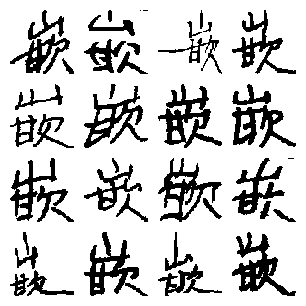 嵌嵌嵌嵌
嵌嵌嵌嵌
嵌嵌嵌嵌
嵌嵌嵌嵌